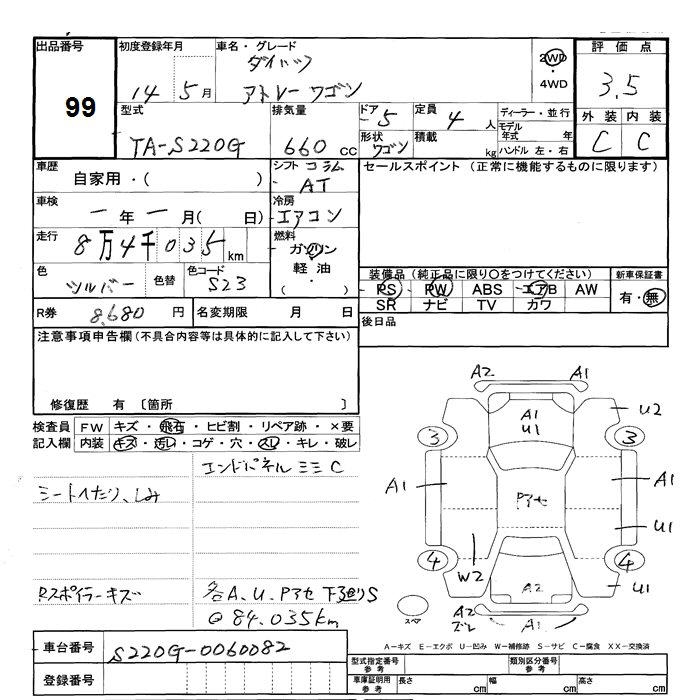 出品番号 99
初度登録年月 14 5月
車名・グレード ダイハツ アトレーワゴン
2WD ・ 4WD
評価点 3.5
外装 C 内装 C
型式 TA-S220G
排気量 660 cc
ドア 5
形状 ワゴン
定員 4 人
積載 kg
ディーラー・並行
モデル年式 年
ハンドル 左・右
車歴 自家用・( )
シフト コラム AT
セールスポイント (正常に機能するものに限ります)
車検 一年一月( 日)
冷房 エアコン
走行 8万4千035km
燃料 ガソリン 軽油 ( ・ )
色 シルバー 色替
色コード S23
装備品 (純正品に限り〇をつけてください)
PS PW ABS エアB AW
SR ナビ TV カワ
新車保証書 有・無
R券 8,680 円
名変期限 月 日
後日品
注意事項申告欄(不具合内容等は具体的に記入して下さい)
修復歴 有 〔箇所 〕
検査員記入欄
FW キズ・飛石・ヒビ割・リペア跡・×要
内装 キズ・汚レ・コゲ・穴・スレ・キレ・破レ
エンドパネル ミミ C
シートへたり、しみ
Rスポイラーキズ
各A、U、Pアセ 下廻りS
@84,035km
A2 A1
A1
U1
U2
3 3
A1 A1
Pアセ
U1
4 4
W2
A2
U1
A2
ズレ
A1
スペア
A－キズ E－エクボ U－凹み W－補修跡 S－サビ C－腐食 XX－交換済
車台番号 S220G-0060082
登録番号
型式指定番号 参考
類別区分番号 参考
車庫証明用 参考
長さ cm 幅 cm 高さ cm